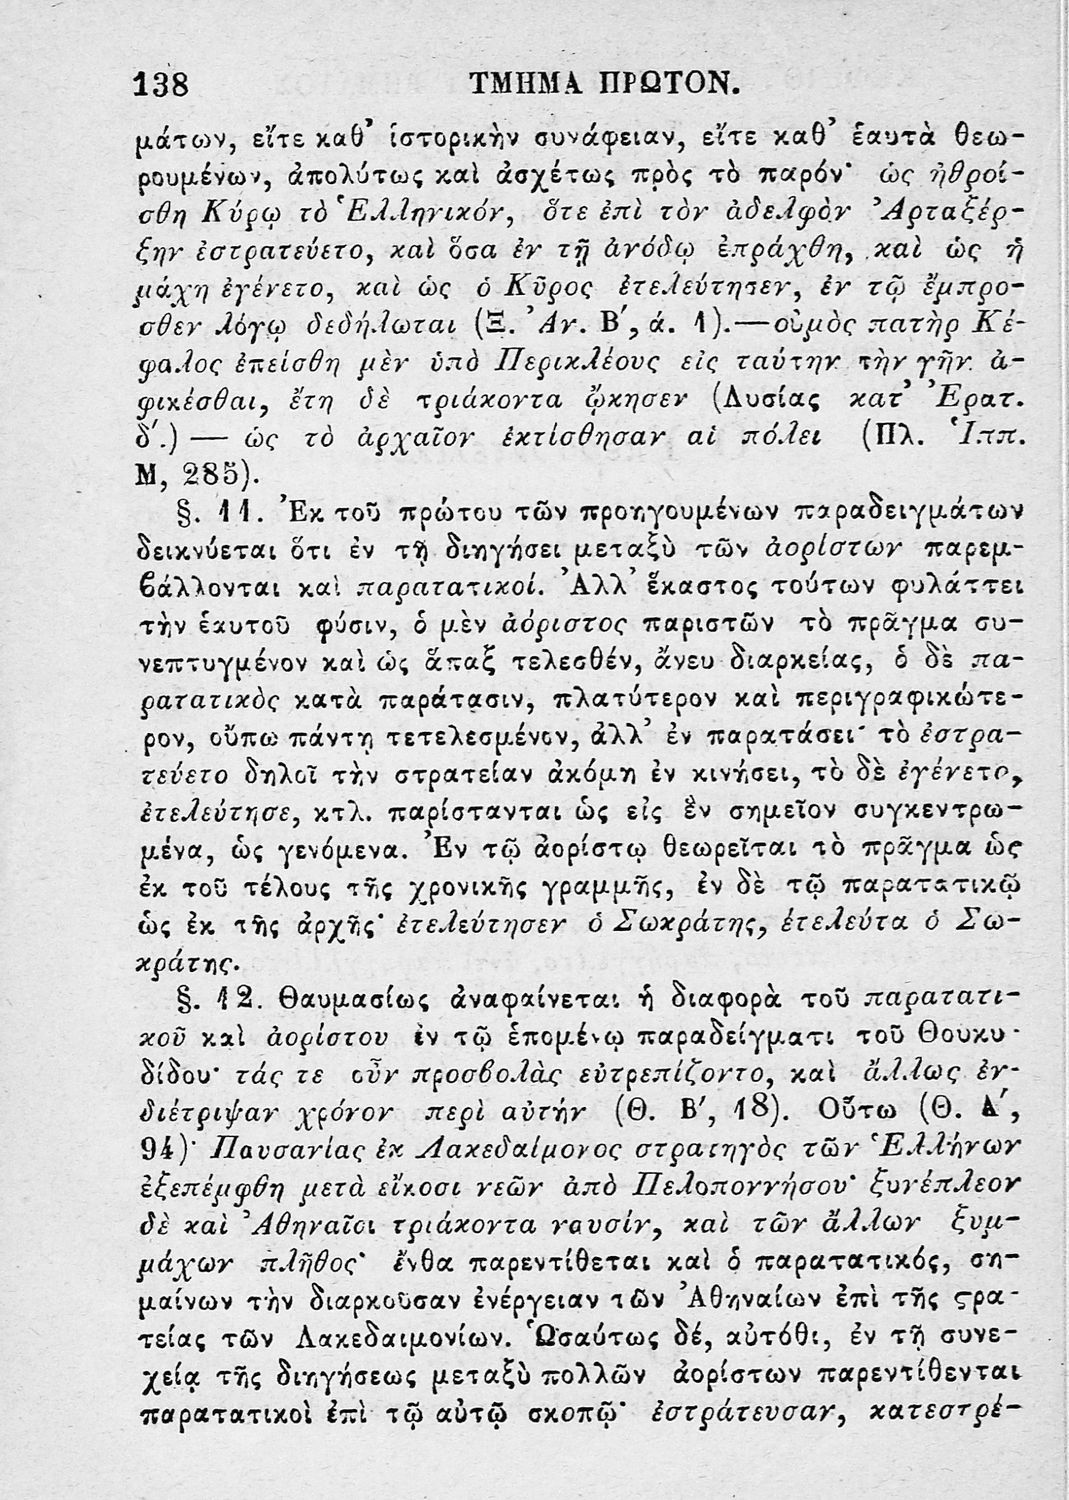 138 ΤΜΗΜΑ ΠΡΩΤΟΝ.
μάτων, εἴτε καθ᾿ ἱστορικὴν συνάφειαν, εἴτε καθ᾿ ἑαυτὰ θεω-
ρουμένων, ἀπολύτως καὶ ἀσχέτως πρὸς τὸ παρόν· ὡς ἠθροί-
σθη Κύρῳ τὸ Ἑλληνικόν, ὅτε ἐπὶ τὸν ἀδελφὸν Ἀρταξέρ-
ξην ἐστρατεύετο, καὶ ὅσα ἐν τῇ ἀνόδῳ ἐπράχθη, καὶ ὡς ἡ
μάχη ἐγένετο, καὶ ὡς ὁ Κῦρος ἐτελεύτησεν, ἐν τῷ ἔμπρο-
σθεν λόγῳ δεδήλωται (Ξ. Ἀν. Β΄, ά. 1).—οὑμὸς πατὴρ Κέ-
φαλος ἐπείσθη μὲν ὑπὸ Περικλέους εἰς ταύτην τὴν γῆν ἀ-
φικέσθαι, ἔτη δὲ τριάκοντα ᾤκησεν (Λυσίας κατ᾿ Ἐρατ.
δ΄.) — ὡς τὸ ἀρχαῖον ἐκτίσθησαν αἱ πόλει (Πλ. Ἱππ.
Μ, 285).
§. 11. Ἐκ τοῦ πρώτου τῶν προηγουμένων παραδειγμάτων
δεικνύεται ὅτι ἐν τῇ διηγήσει μεταξὺ τῶν ἀορίστων παρεμ-
βάλλονται καὶ παρατατικοί. Ἀλλ᾿ ἕκαστος τούτων φυλάττει
τὴν ἑαυτοῦ φύσιν, ὁ μὲν ἀόριστος παριστῶν τὸ πρᾶγμα συ-
νεπτυγμένον καὶ ὡς ἅπαξ τελεσθέν, ἄνευ διαρκείας, ὁ δὲ πα-
ρατατικὸς κατὰ παράτασιν, πλατύτερον καὶ περιγραφικώτε-
ρον, οὔπω πάντη τετελεσμένον, ἀλλ᾿ ἐν παρατάσει· τὸ ἐστρα-
τεύετο δηλοῖ τὴν στρατείαν ἀκόμη ἐν κινήσει, τὸ δὲ ἐγένετο,
ἐτελεύτησε, κτλ. παρίστανται ὡς εἰς ἓν σημεῖον συγκεντρω-
μένα, ὡς γενόμενα. Ἐν τῷ ἀορίστῳ θεωρεῖται τὸ πρᾶγμα ὡς
ἐκ τοῦ τέλους τῆς χρονικῆς γραμμῆς, ἐν δὲ τῷ παρατατικῷ
ὡς ἐκ τῆς ἀρχῆς· ἐτελεύτησεν ὁ Σωκράτης, ἐτελεύτα ὁ Σω-
κράτης.
§. 12. Θαυμασίως ἀναφαίνεται ἡ διαφορὰ τοῦ παρατατι-
κοῦ καὶ ἀορίστου ἐν τῷ ἑπομένῳ παραδείγματι τοῦ Θουκυ-
δίδου· τάς τε οὖν προσβολὰς εὐτρεπίζοντο, καὶ ἄλλως ἐν-
διέτριψαν χρόνον περὶ αὐτήν (Θ. Β΄, 18). Οὕτω (Θ. Α΄,
94)· Παυσανίας ἐκ Λακεδαίμονος στρατηγὸς τῶν Ἑλλήνων
ἐξεπέμφθη μετὰ εἴκοσι νεῶν ἀπὸ Πελοποννήσου· ξυνέπλεον
δὲ καὶ Ἀθηναῖοι τριάκοντα ναυσίν, καὶ τῶν ἄλλων ξυμ-
μάχων πλῆθος· ἔνθα παρεντίθεται καὶ ὁ παρατατικός, ση-
μαίνων τὴν διαρκοῦσαν ἐνέργειαν τῶν Ἀθηναίων ἐπὶ τῆς ϛρα-
τείας τῶν Λακεδαιμονίων. Ὡσαύτως δέ, αὐτόθι, ἐν τῇ συνε-
χείᾳ τῆς διηγήσεως μεταξὺ πολλῶν ἀορίστων παρεντίθενται
παρατατικοὶ ἐπὶ τῷ αὐτῷ σκοπῷ· ἐστράτευσαν, κατεστρέ-